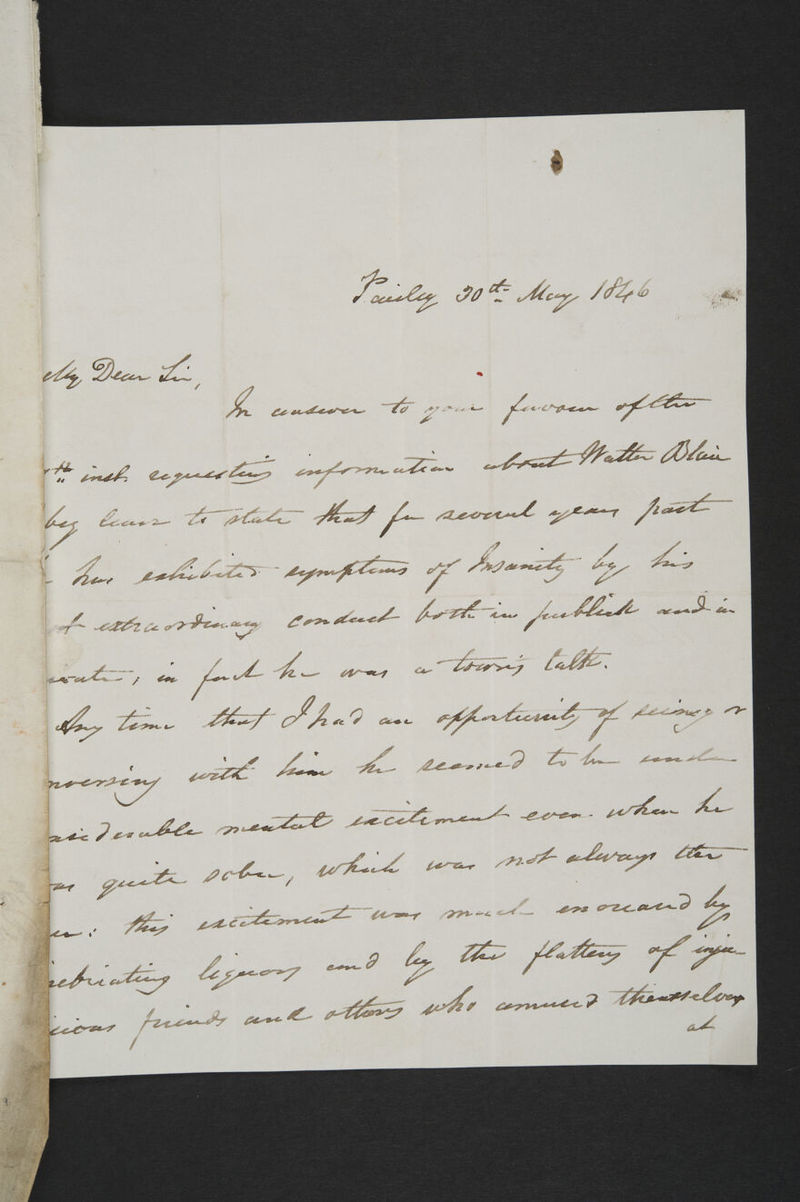 Paisley 30th May 1846
My Dear Sir,
In answer to your favour of the
th inst requesting information about Walter Blair
beg leave to state that for several years past
has exhibited symptoms of Insanity by his
extraordinary conduct both in publick and in
vate, in fact he was a town's talk.
Any time that I had an opportunity of seeing or
nversing with him he seemed to be under
nsiderable mental excitement even when he
as quite sober, which was not always the
se: this excitement was much increased by
nebriating liquors and by the flattery of inju-
icious friends and others who amused themselves
at